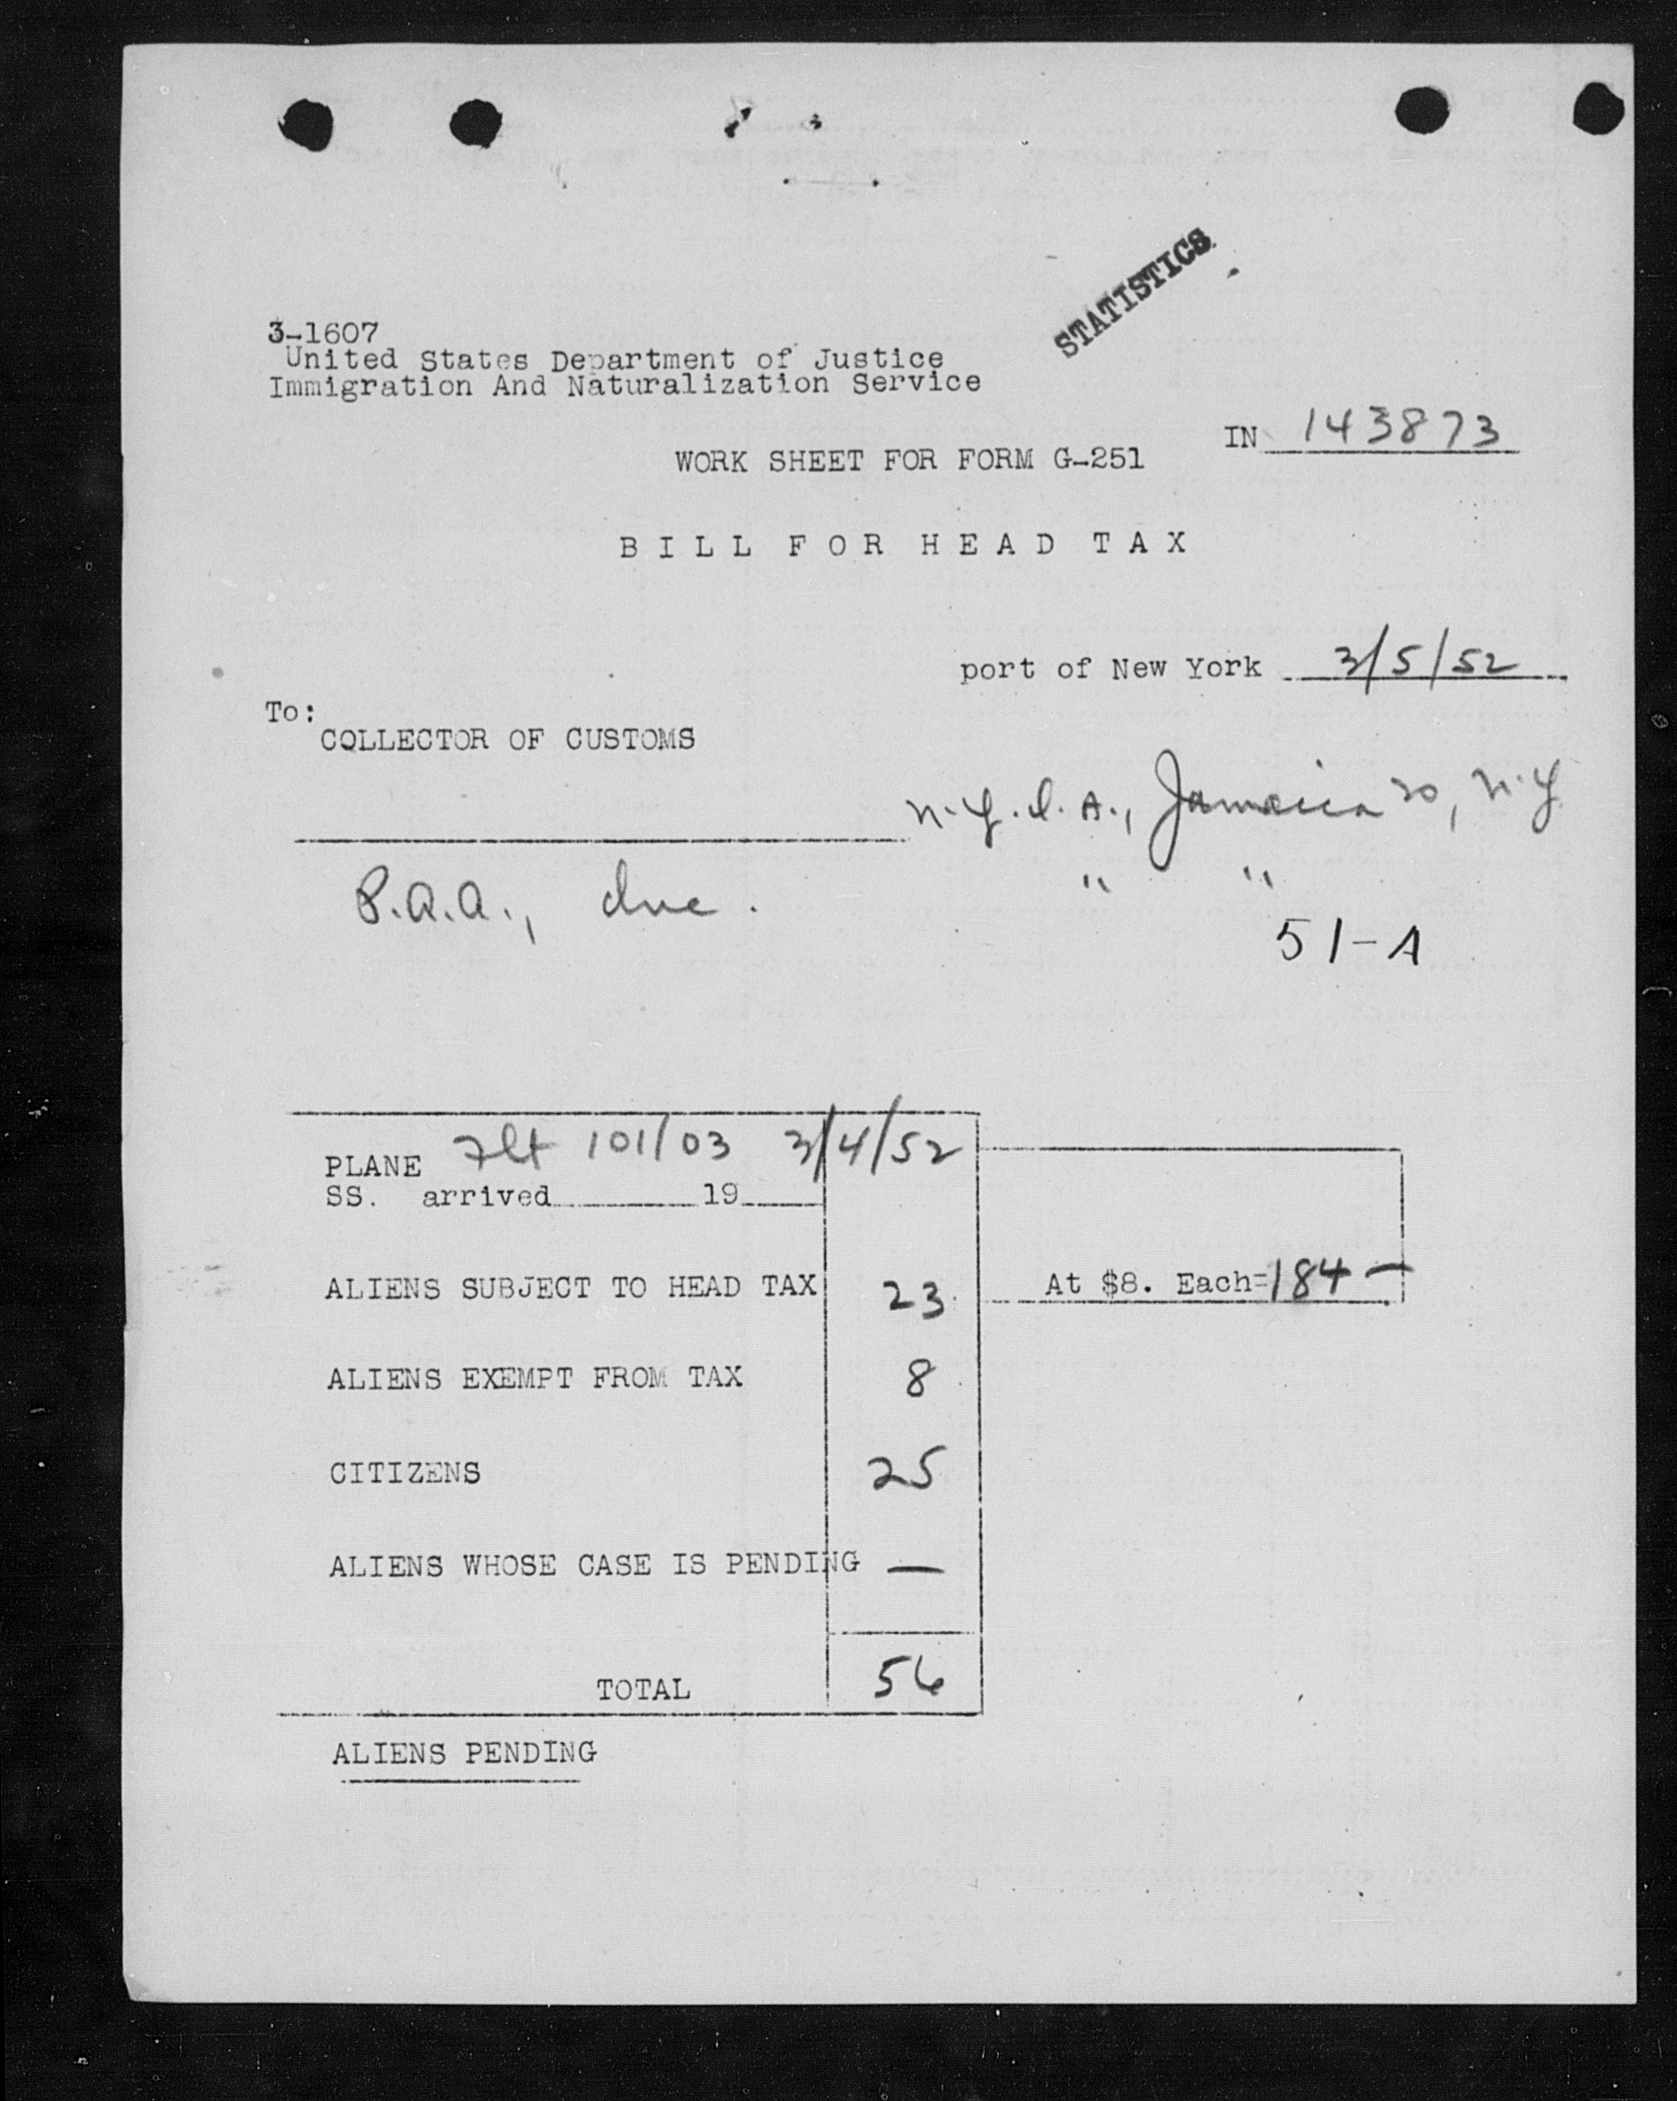 STATISTICS
3-1607
United States Department of Justice
Immigration And Naturalization Service
IN 143873
WORK SHEET FOR FORM G-251
BILL FOR HEAD TAX
port of New York 3/5/52
To:
COLLECTOR OF CUSTOMS
N.Y.I.A., Jamaica 30, N.Y
P.A.A., Inc. " "
51-A
PLANE Flt 101/03 3/4/52
SS. arrived 19
ALIENS SUBJECT TO HEAD TAX 23 At $8. Each=184 —
ALIENS EXEMPT FROM TAX 8
CITIZENS 25
ALIENS WHOSE CASE IS PENDING —
TOTAL 56
ALIENS PENDING